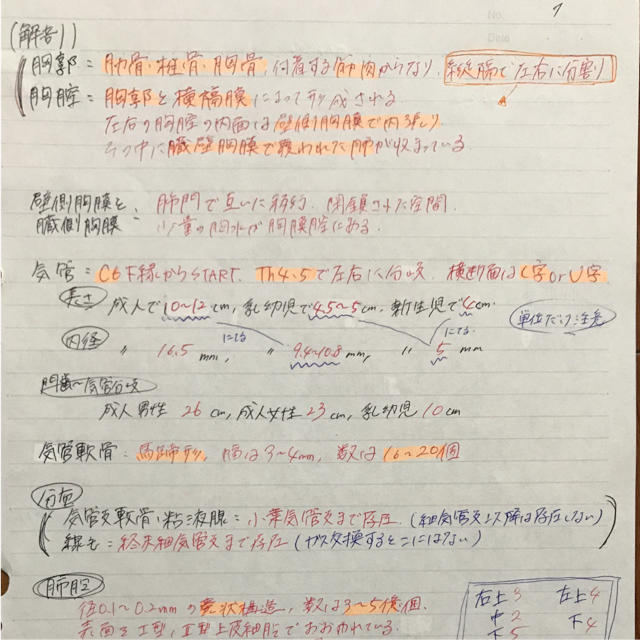 (解剖1)
胸郭 = 肋骨・椎骨・胸骨, 付着する筋肉からなり, 縦隔で左右に分割
胸腔 = 胸郭と横隔膜によって形成される
左右の胸腔の内面は壁側胸膜で内張り
その中に臓側胸膜で覆われた肺が収まっている.
壁側胸膜と
臓側胸膜 : 肺門で互いに移行. 閉鎖された空間.
少量の胸水が胸膜腔にある.
気管 : C6下縁からSTART. Th4.5で左右に分岐 横断面はC字orU字
長さ 成人で10~12cm, 乳幼児で4.5~5cm, 新生児で4cm.
にてる にてる 単位だけ注意
内径 〃 16.5mm, 〃 9.4~10.8mm, 〃 5mm
門歯~気管分岐
成人男性 26cm, 成人女性23cm, 乳幼児10cm
気管軟骨 : 馬蹄形, 幅は3~4mm, 数は16~20個
分布
気管支軟骨・粘液腺 = 小葉気管支まで存在. (細気管支以降は存在しない)
線毛 = 終末細気管支まで存在 (ガス交換するとこにはない)
肺胞
径0.1~0.2mmの嚢状構造, 数は3~5億個.
表面をⅠ型, Ⅱ型上皮細胞でおおわれている.
右上3 左上4
中2 下4
下5